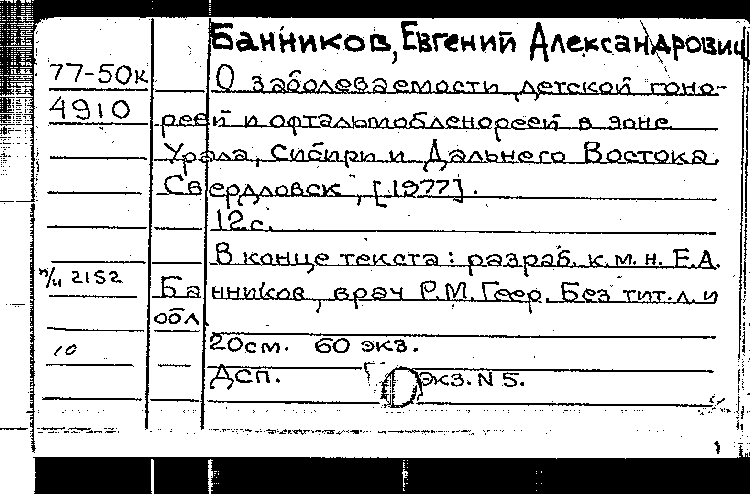 Банников, Евгений Александрович
77-50к О заболеваемости детской гоно-
4910 реей и офтальмобленореей в зоне
Урала, Сибири и Дальнего Востока.
Свердловск, [1977].
12с.
В конце текста: разраб. к.м.н. Е.А.
п/и 2152 Банников, врач Р.М. Геер. Без тит. л. и
обл.
10 20см. 60 экз.
Дсп. Экз. N 5.
1